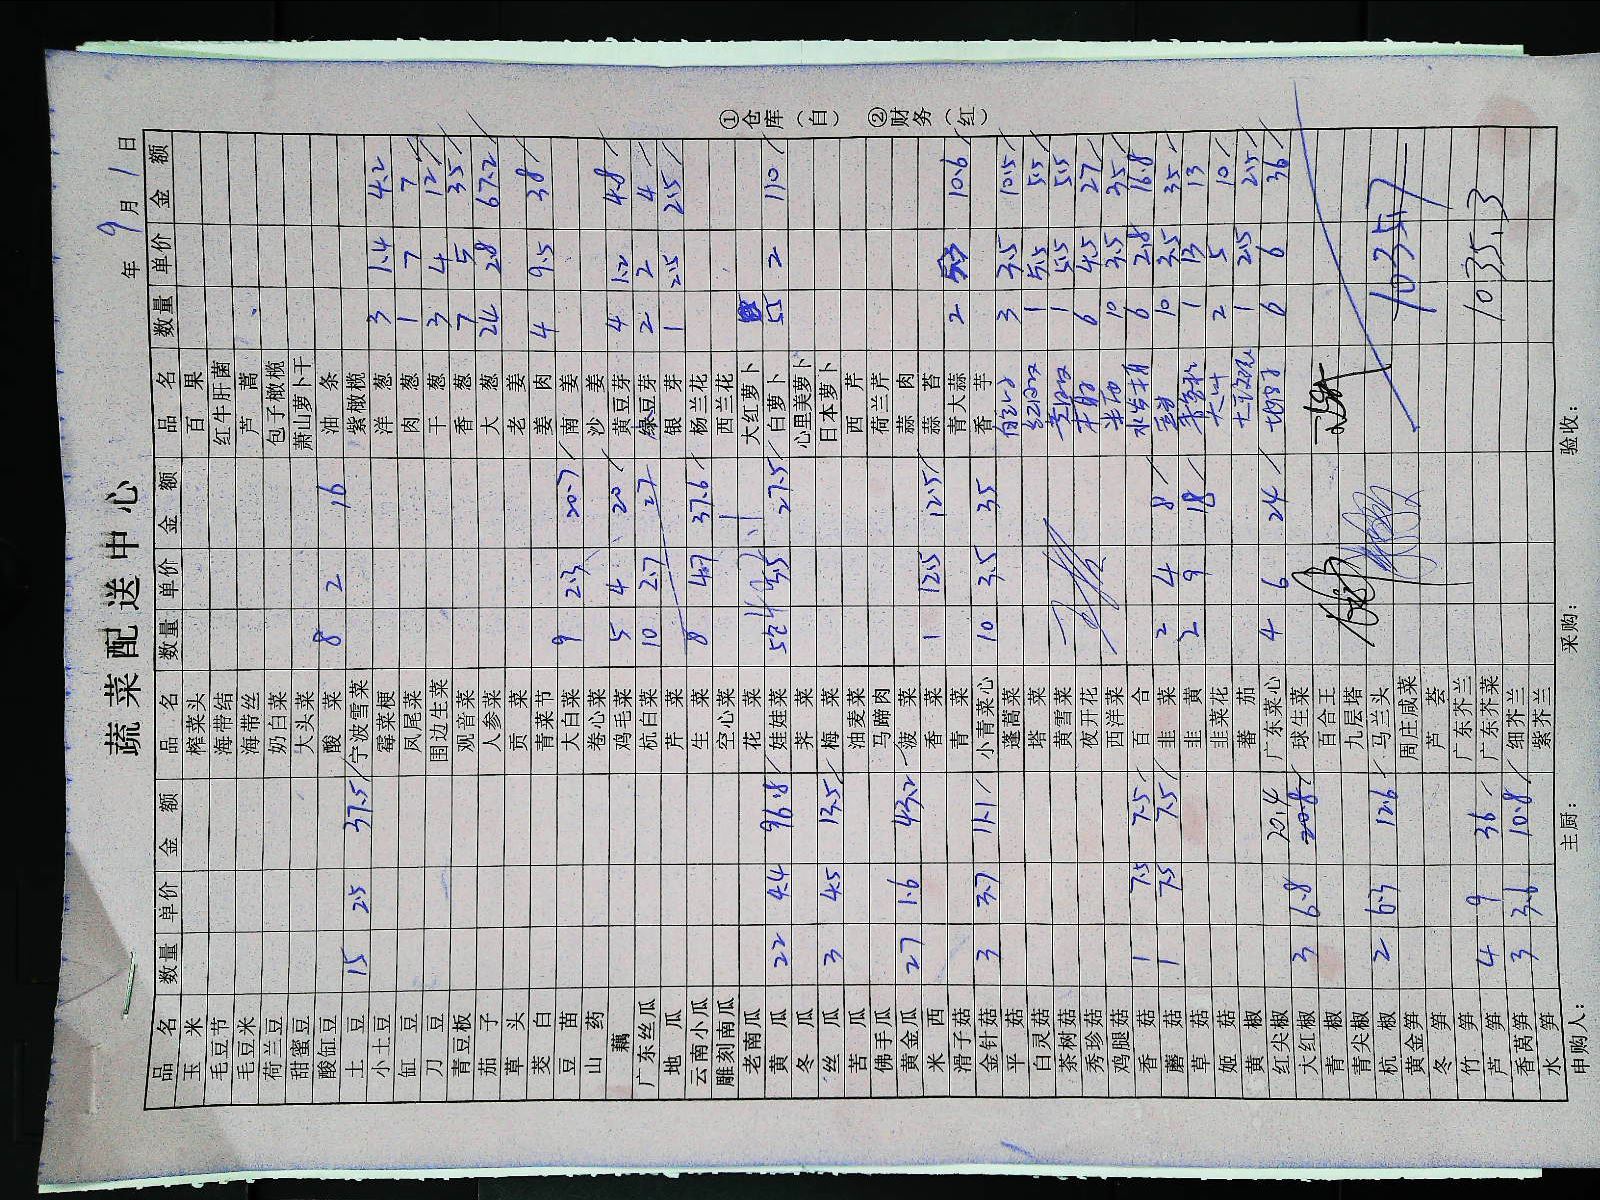 蔬菜配送中心
年 9 月 1 日
品名 数量 单价 金额 品名 数量 单价 金额 品名 数量 单价 金额
玉米 榨菜头 百果
毛豆节 海带结 红牛肝菌
毛豆米 海带丝 芦蒿
荷兰豆 奶白菜 包子橄榄
甜蜜豆 大头菜 萧山萝卜干
酸缸豆 酸菜 8 2 16 油条
土豆 15 2.5 37.5 宁波雪菜 紫橄榄
小土豆 霉菜梗 洋葱 3 1.4 4.2
缸豆 凤尾菜 肉葱 1 7 7
刀豆 围边生菜 干葱 3 4 12
青豆板 观音菜 香葱 7 5 35
茄子 人参菜 大葱 24 2.8 67.2
草头 贡菜 老姜
茭白 青菜节 姜肉 4 9.5 38
豆苗 大白菜 9 2.3 20.7 南姜
山药 卷心菜 沙姜
藕 鸡毛菜 5 4 20 黄豆芽 4 1.2 4.8
广东丝瓜 杭白菜 10 2.7 27 绿豆芽 2 2 4
地瓜 芹菜 银芽 1 2.5 2.5
云南小瓜 生菜 8 4.7 37.6 杨兰花
雕刻南瓜 空心菜 西兰花
老南瓜 花菜 大红萝卜
黄瓜 22 4.4 96.8 娃娃菜 3.5 27.5 白萝卜 55 2 110
冬瓜 荠菜 心里美萝卜
丝瓜 3 4.5 13.5 梅菜 日本萝卜
苦瓜 油麦菜 西芹
佛手瓜 马蹄肉 荷兰芹
黄金瓜 27 1.6 43.2 菠菜 蒜肉
米西 香菜 1 12.5 12.5 蒜苔
滑子菇 青菜 青大蒜 2 5.3 10.6
金针菇 3 3.7 11.1 小青菜心 10 3.5 35 香芋
平菇 蓬蒿菜 3 3.5 10.5
白灵菇 塔菜 1 5.5 5.5
茶树菇 黄雪菜 1 5.5 5.5
秀珍菇 夜开花 6 4.5 27
鸡腿菇 西洋菜 10 3.5 35
香菇 1 7.5 7.5 百合 6 2.8 16.8
蘑菇 1 7.5 7.5 韭菜 2 4 8 10 3.5 35
草菇 韭黄 2 9 18 1 13 13
姬菇 韭菜花 2 5 10
黄椒 蕃茄 1 2.5 2.5
红尖椒 广东菜心 4 6 24 6 6 36
大红椒 3 6.8 20.8 20.4 球生菜
青椒 百合王
青尖椒 九层塔
杭椒 2 6.3 12.6 马兰头
黄金笋 周庄咸菜
冬笋 芦荟
竹笋 广东芥兰
芦笋 4 9 36 广东芥菜
香莴笋 3 3.6 10.8 细芥兰
水笋 紫芥兰
1035.7
1035.3
申购人： 主厨： 采购： 验收：
①仓库（白） ②财务（红）